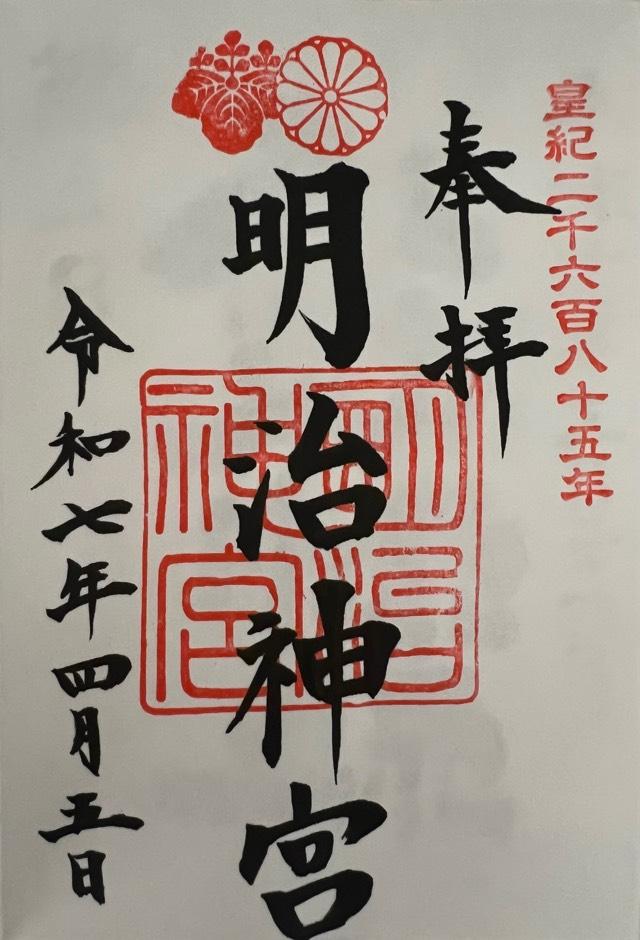 皇紀二千六百八十五年
奉拝
明治神宮
明治神宮
令和七年四月五日